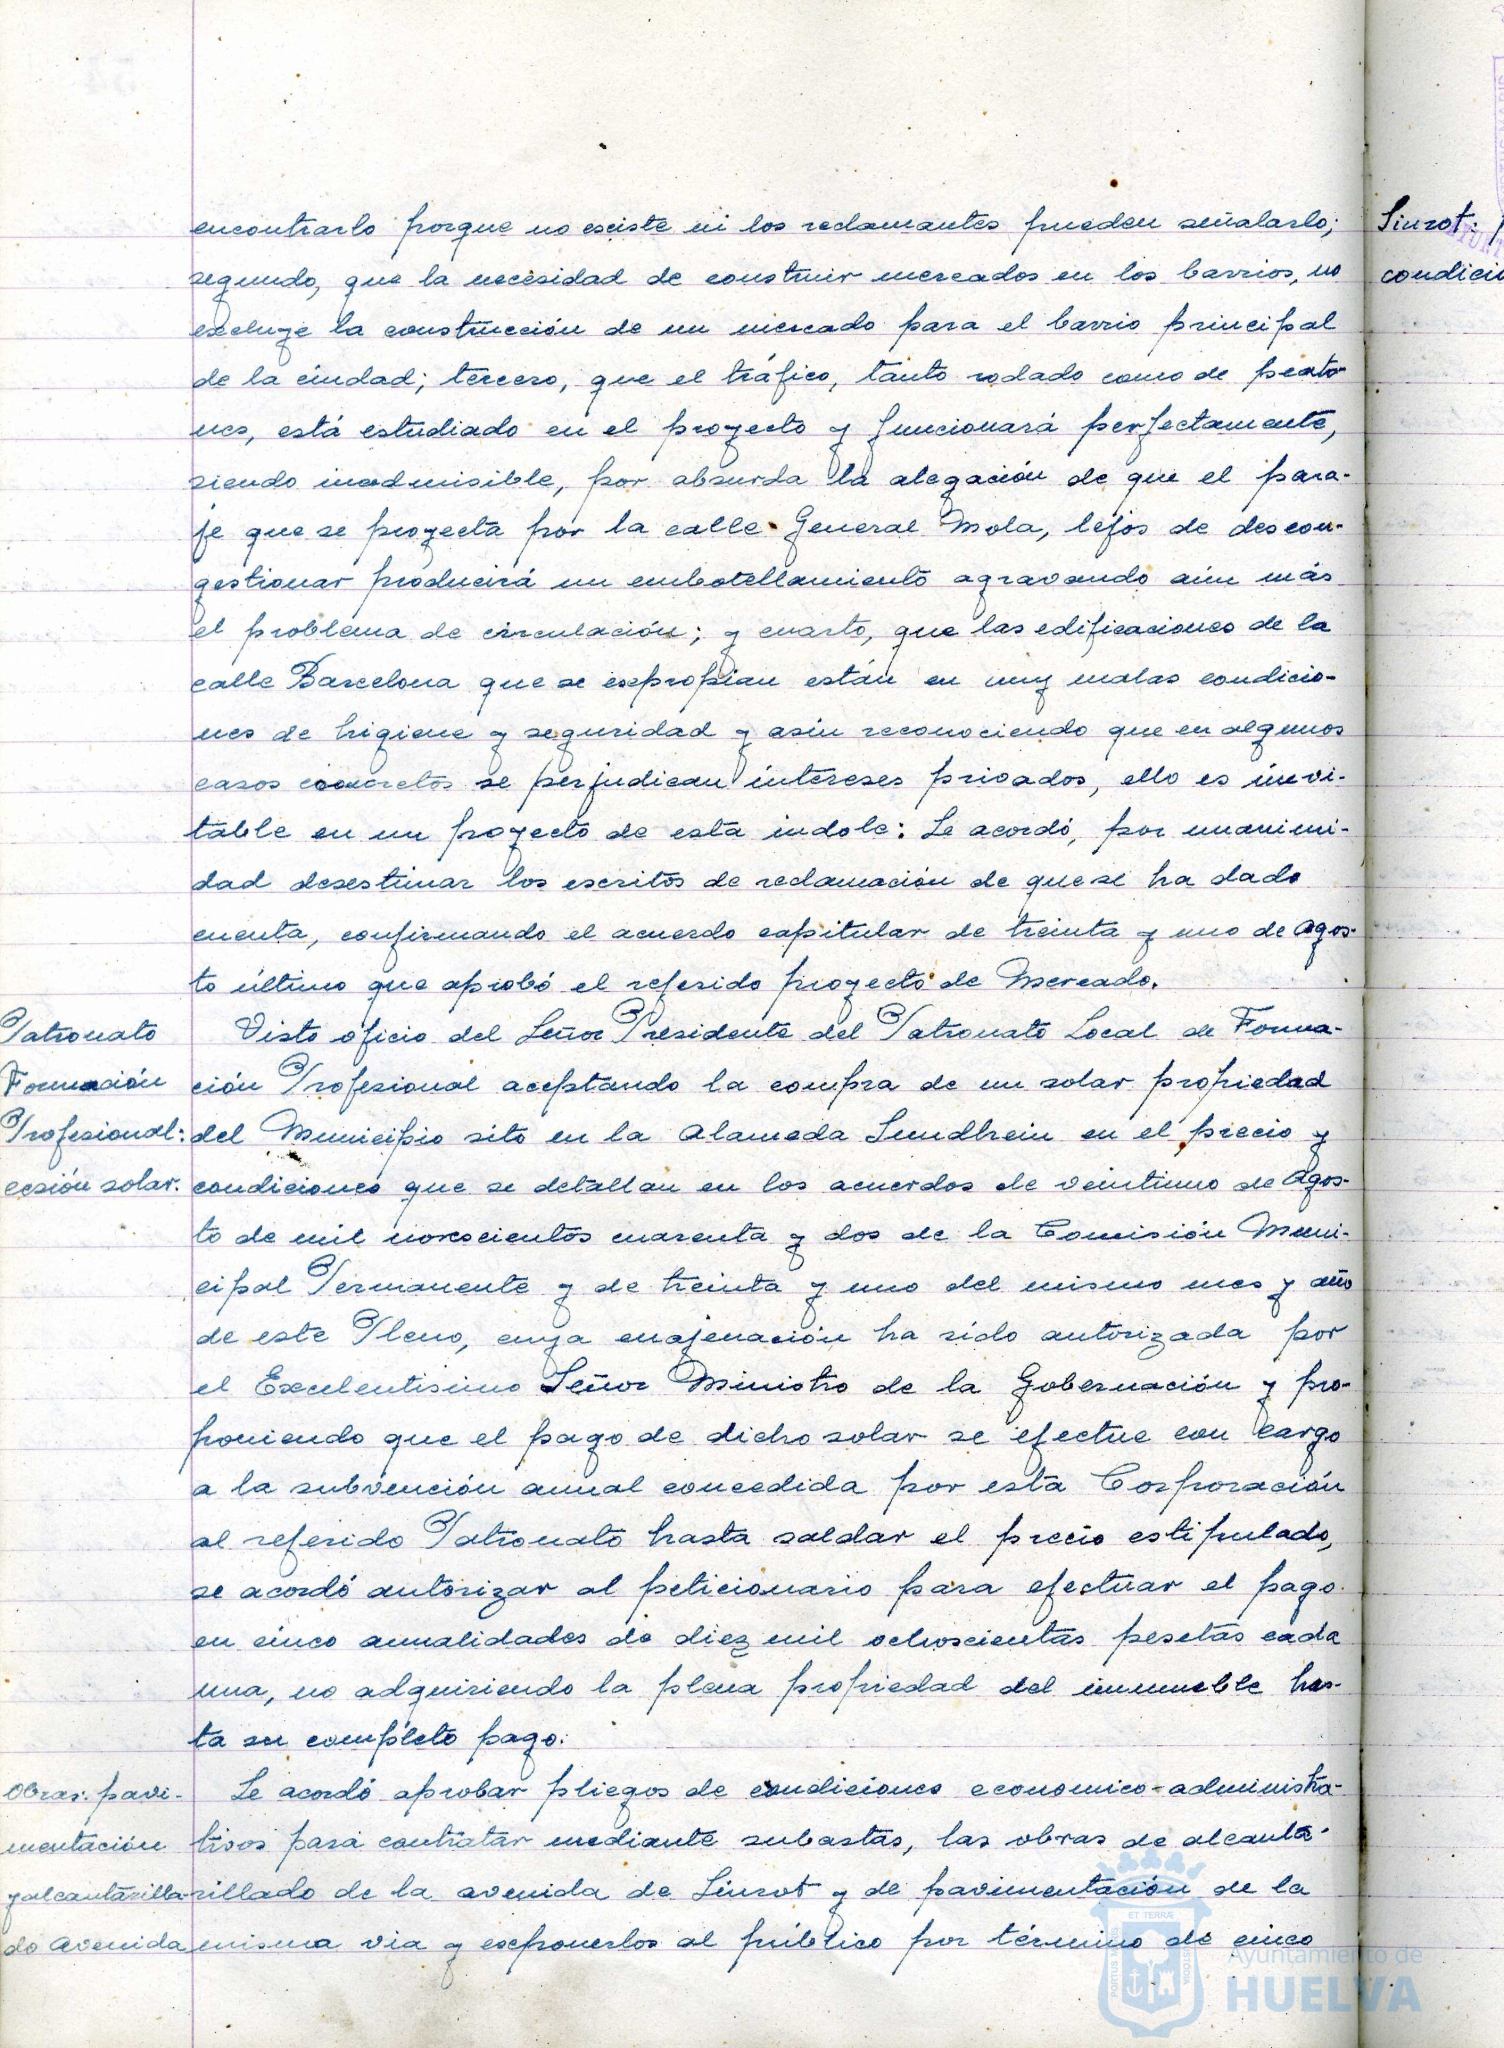 encontrarlo porque no existe ni los reclamantes pueden señalarlo;
segundo, que la necesidad de construir mercados en los barrios, no
excluye la construcción de un mercado para el barrio principal
de la ciudad; tercero, que el tráfico, tanto rodado como de peato-
nes, está estudiado en el proyecto y funcionará perfectamente,
siendo inadmisible, por absurda la alegación de que el para-
je que se proyecta por la calle General Mola, lejos de descon-
gestionar producirá un embotellamiento agravando aún más
el problema de circulación; y cuarto, que las edificaciones de la
calle Barcelona que se expropian están en muy malas condicio-
nes de higiene y seguridad y aún reconociendo que en algunos
casos concretos se perjudican intereses privados, ello es inevi-
table en un proyecto de esta índole: Se acordó, por unanimi-
dad desestimar los escritos de reclamación de que se ha dado
cuenta, confirmando el acuerdo capitular de treinta y uno de Agos-
to último que aprobó el referido proyecto de Mercado.
Patronato
Formación
Profesional:
cesión solar.
Visto oficio del Señor Presidente del Patronato Local de Forma-
ción Profesional aceptando la compra de un solar propiedad
del Municipio sito en la Alameda Sundhein en el precio y
condiciones que se detallan en los acuerdos de veintiuno de Agos-
to de mil novecientos cuarenta y dos de la Comisión Muni-
cipal Permanente y de treinta y uno del mismo mes y año
de este Pleno, cuya enajenación ha sido autorizada por
el Excelentisimo Señor Ministro de la Gobernación y pro-
poniendo que el pago de dicho solar se efectue con cargo
a la subvención anual concedida por esta Corporación
al referido Patronato hasta saldar el precio estipulado,
se acordó autorizar al peticionario para efectuar el pago
en cinco anualidades de diez mil ochoscientas pesetas cada
una, no adquiriendo la plena propiedad del inmueble has-
ta su completo pago.
Obras: pavi-
mentación
y alcantarilla-
do Avenida
Se acordó aprobar pliegos de condiciones economico-administra-
tivos para contratar mediante subastas, las obras de alcanta-
rillado de la avenida de Siurot y de pavimentación de la
misma via y exponerlos al público por término de cinco
Siurot:
condicio
ET TERRÆ
PORTUS MARIS
CUSTODIA
Ayuntamiento de
HUELVA